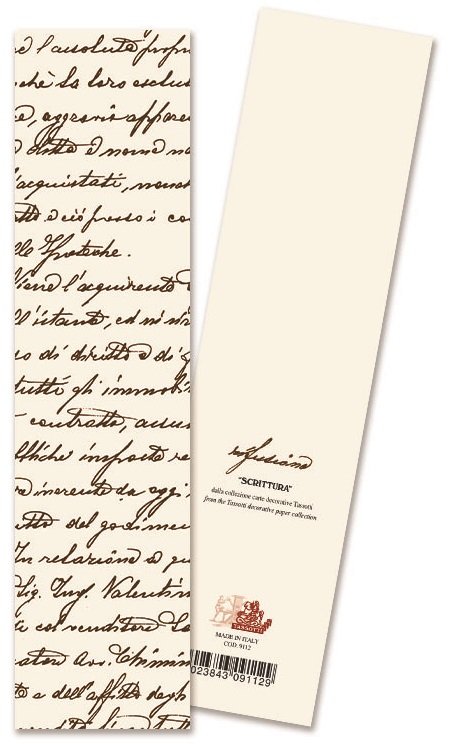 è l'assoluta propr
chè la loro esclus
e, aggravio appare
ditta è nome no
acquistati, nonch
tto e ciò presso i co
lle Ipoteche.
l'acquirente
ll'istante, ed in
so di diritto e di
tutti gli immobil
contratto, assu
imposte re
inerente da oggi
tto del godimen
In relazione a qu
Sig. Ing. Valentin
col venditore
Avv.
e dell'affitto degli
"SCRITTURA"
dalla collezione carte decorative Tassotti
from the Tassotti decorative paper collection
TASSOTTI
MADE IN ITALY
COD. 9112
023843 091129